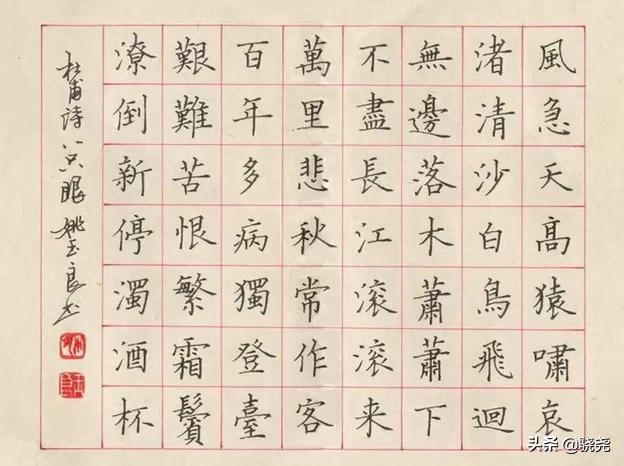 風急天高猿嘯哀
渚清沙白鳥飛迴
無邊落木蕭蕭下
不盡長江滚滚来
萬里悲秋常作客
百年多病獨登臺
艱難苦恨繁霜鬢
潦倒新停濁酒杯
杜甫詩 只眼 姚玉良书
头条 @骁尧